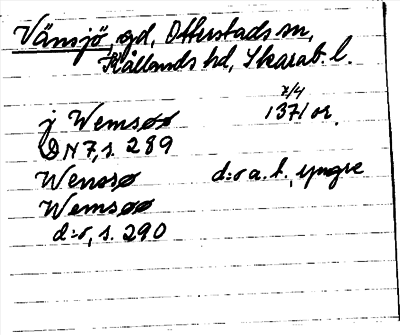 Vänsjö, gd, Otterstads sn,
Kållands hd, Skarab. l.
7/4
j Wemsøø 1371 or.
DN 7, s. 289
Wemsø d:o a. h., yngre
Wemsøø
d:o, s. 290